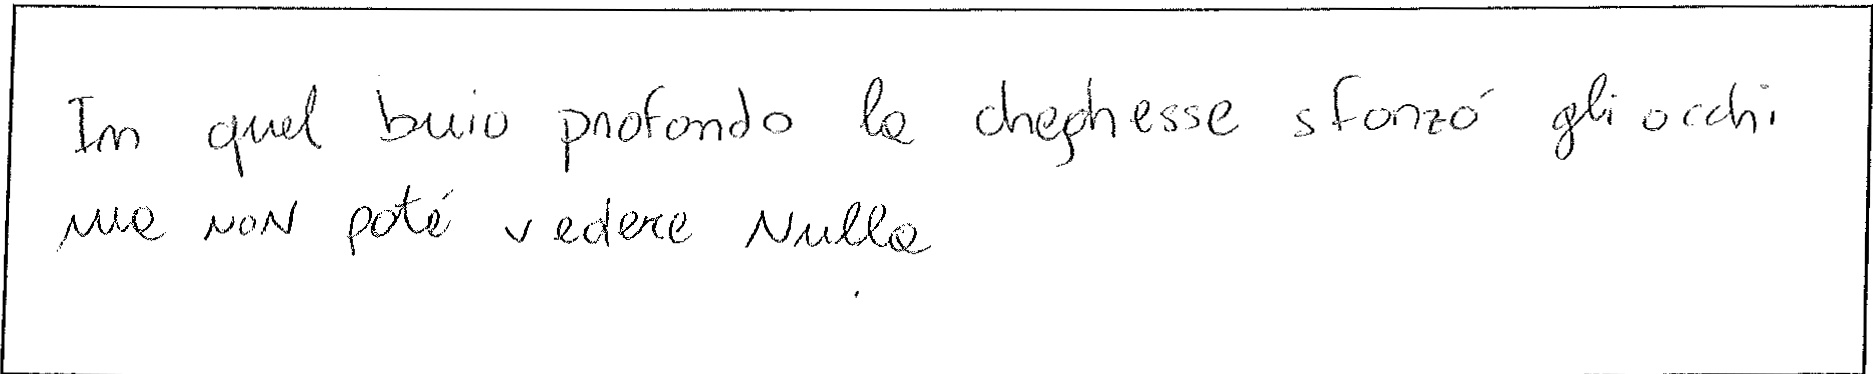 In quel buio profondo la cheghesse sforzó gli occhi
ma non poté vedere Nulla